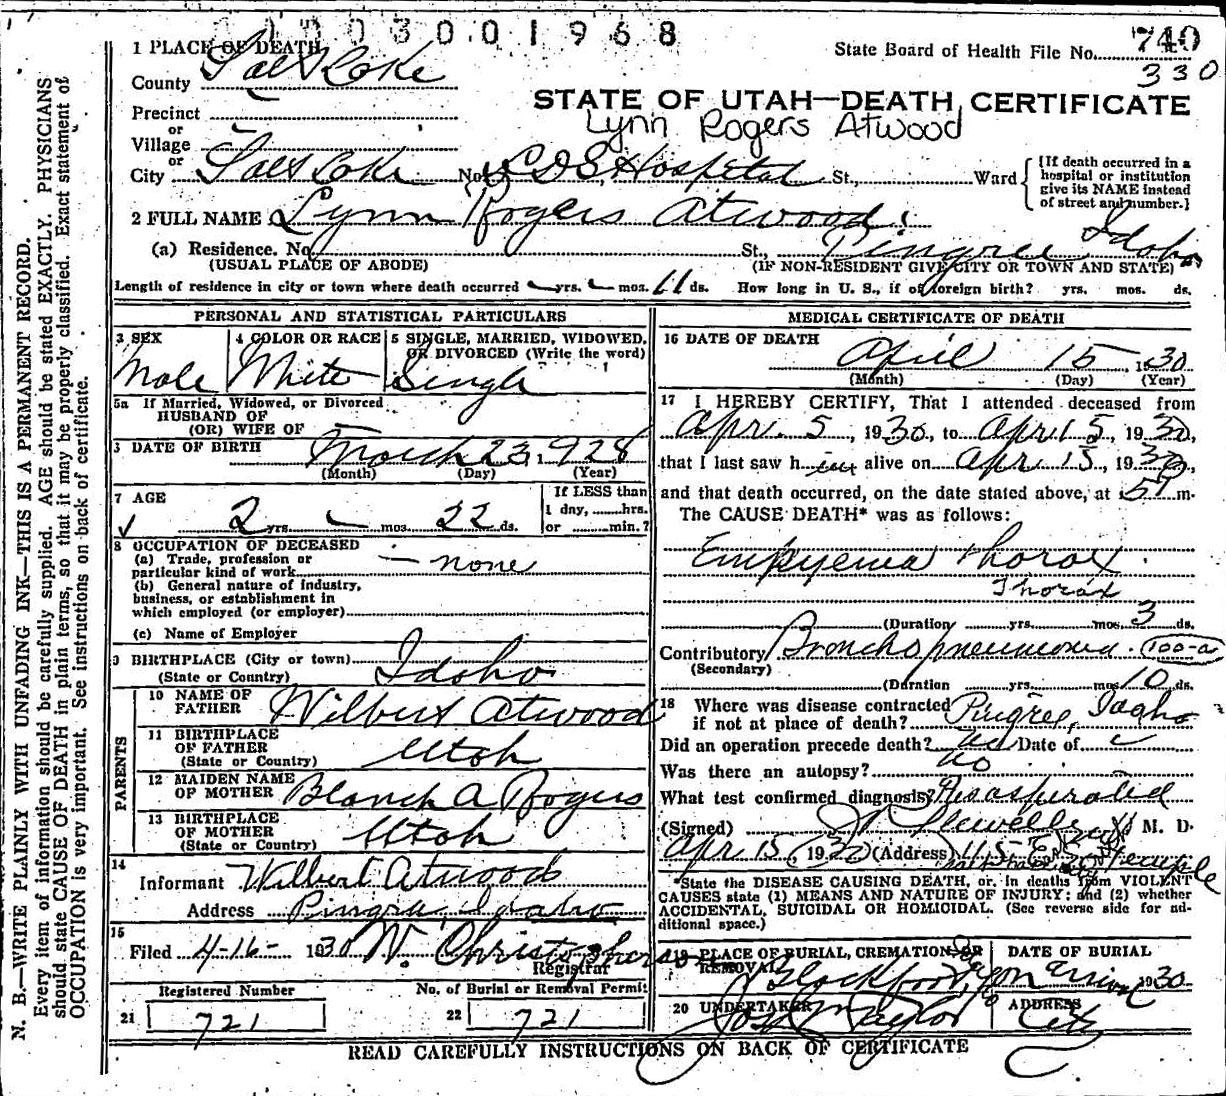 1003001968
State Board of Health File No. 740
330
1 PLACE OF DEATH
County Salt Lake
STATE OF UTAH—DEATH CERTIFICATE
Lynn Rogers Atwood
Precinct
or
Village
or
City Salt Lake No. L D S Hospital St., Ward
{If death occurred in a
hospital or institution
give its NAME instead
of street and number.}
2 FULL NAME Lynn Rogers Atwood
(a) Residence. No. St., Pingree Idaho
(USUAL PLACE OF ABODE) (IF NON-RESIDENT GIVE CITY OR TOWN AND STATE)
Length of residence in city or town where death occurred yrs. mos. 11 ds. How long in U. S., if of foreign birth? yrs. mos. ds.
PERSONAL AND STATISTICAL PARTICULARS
3 SEX
Male
4 COLOR OR RACE
White
5 SINGLE, MARRIED, WIDOWED,
OR DIVORCED (Write the word)
Single
5a If Married, Widowed, or Divorced
HUSBAND OF
(OR) WIFE OF
DATE OF BIRTH March 23, 1928
(Month) (Day) (Year)
7 AGE
2 yrs. mos. 22 ds.
If LESS than
1 day, hrs.
or min.?
8 OCCUPATION OF DECEASED
(a) Trade, profession or
particular kind of work none
(b) General nature of industry,
business, or establishment in
which employed (or employer)
(c) Name of Employer
9 BIRTHPLACE (City or town)
(State or Country) Idaho
PARENTS
10 NAME OF
FATHER Wilbert Atwood
11 BIRTHPLACE
OF FATHER
(State or Country) Utah
12 MAIDEN NAME
OF MOTHER Blanch A Rogers
13 BIRTHPLACE
OF MOTHER
(State or Country) Utah
14
Informant Wilbert Atwood
Address Pingree, Idaho
15
Filed 4-16- 1930 W. Christopherson
Registrar
Registered Number
21 721
No. of Burial or Removal Permit
22 721
MEDICAL CERTIFICATE OF DEATH
16 DATE OF DEATH
April 15 1930
(Month) (Day) (Year)
17 I HEREBY CERTIFY, That I attended deceased from
Apr. 5, 1930, to Apr 15, 1930,
that I last saw him alive on Apr 15, 1930,
and that death occurred, on the date stated above, at m.
The CAUSE DEATH* was as follows:
Empyema thorax
Thorax
(Duration yrs. mos. 3 ds.
Contributory Bronchopneumonia. 100-a
(Secondary)
(Duration yrs. mos. 10 ds.
18 Where was disease contracted
if not at place of death? Pingree, Idaho
Did an operation precede death? no Date of
Was there an autopsy? no
What test confirmed diagnosis?
(Signed) M. D.
Apr 15, 1930 (Address) 115 E. Temple
*State the DISEASE CAUSING DEATH, or, in deaths from VIOLENT
CAUSES state (1) MEANS AND NATURE OF INJURY; and (2) whether
ACCIDENTAL, SUICIDAL OR HOMICIDAL. (See reverse side for ad-
ditional space.)
19 PLACE OF BURIAL, CREMATION, OR
REMOVAL
Blackfoot
DATE OF BURIAL
1930
20 UNDERTAKER
Taylor
ADDRESS
City
READ CAREFULLY INSTRUCTIONS ON BACK OF CERTIFICATE
N. B.—WRITE PLAINLY WITH UNFADING INK—THIS IS A PERMANENT RECORD.
Every item of information should be carefully supplied. AGE should be stated EXACTLY. PHYSICIANS
should state CAUSE OF DEATH in plain terms, so that it may be properly classified. Exact statement of
OCCUPATION is very important. See instructions on back of certificate.